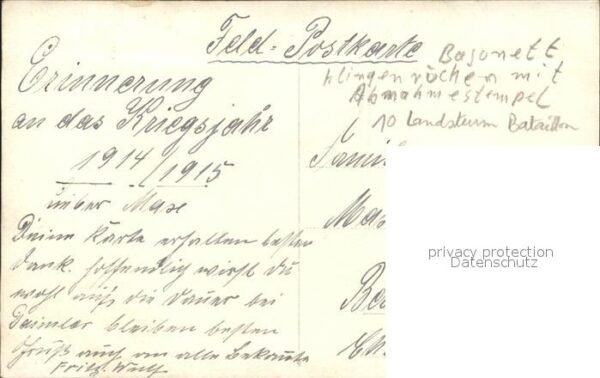 Feld-Postkarte
Bajonett
klingenrücken mit
Abnahmestempel
10 Landsturm Bataillon
Erinnerung
an das Kriegsjahr
1914/1915
Lieber Max
Deine Karte erhalten besten
Dank. hoffentlich wirst du
wohl auf die Dauer bei
Daimler bleiben besten
Gruß auch an alle Bekannte
Fritz
Famil
Max
Be
privacy protection
Datenschutz